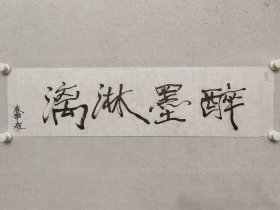 醉墨淋漓